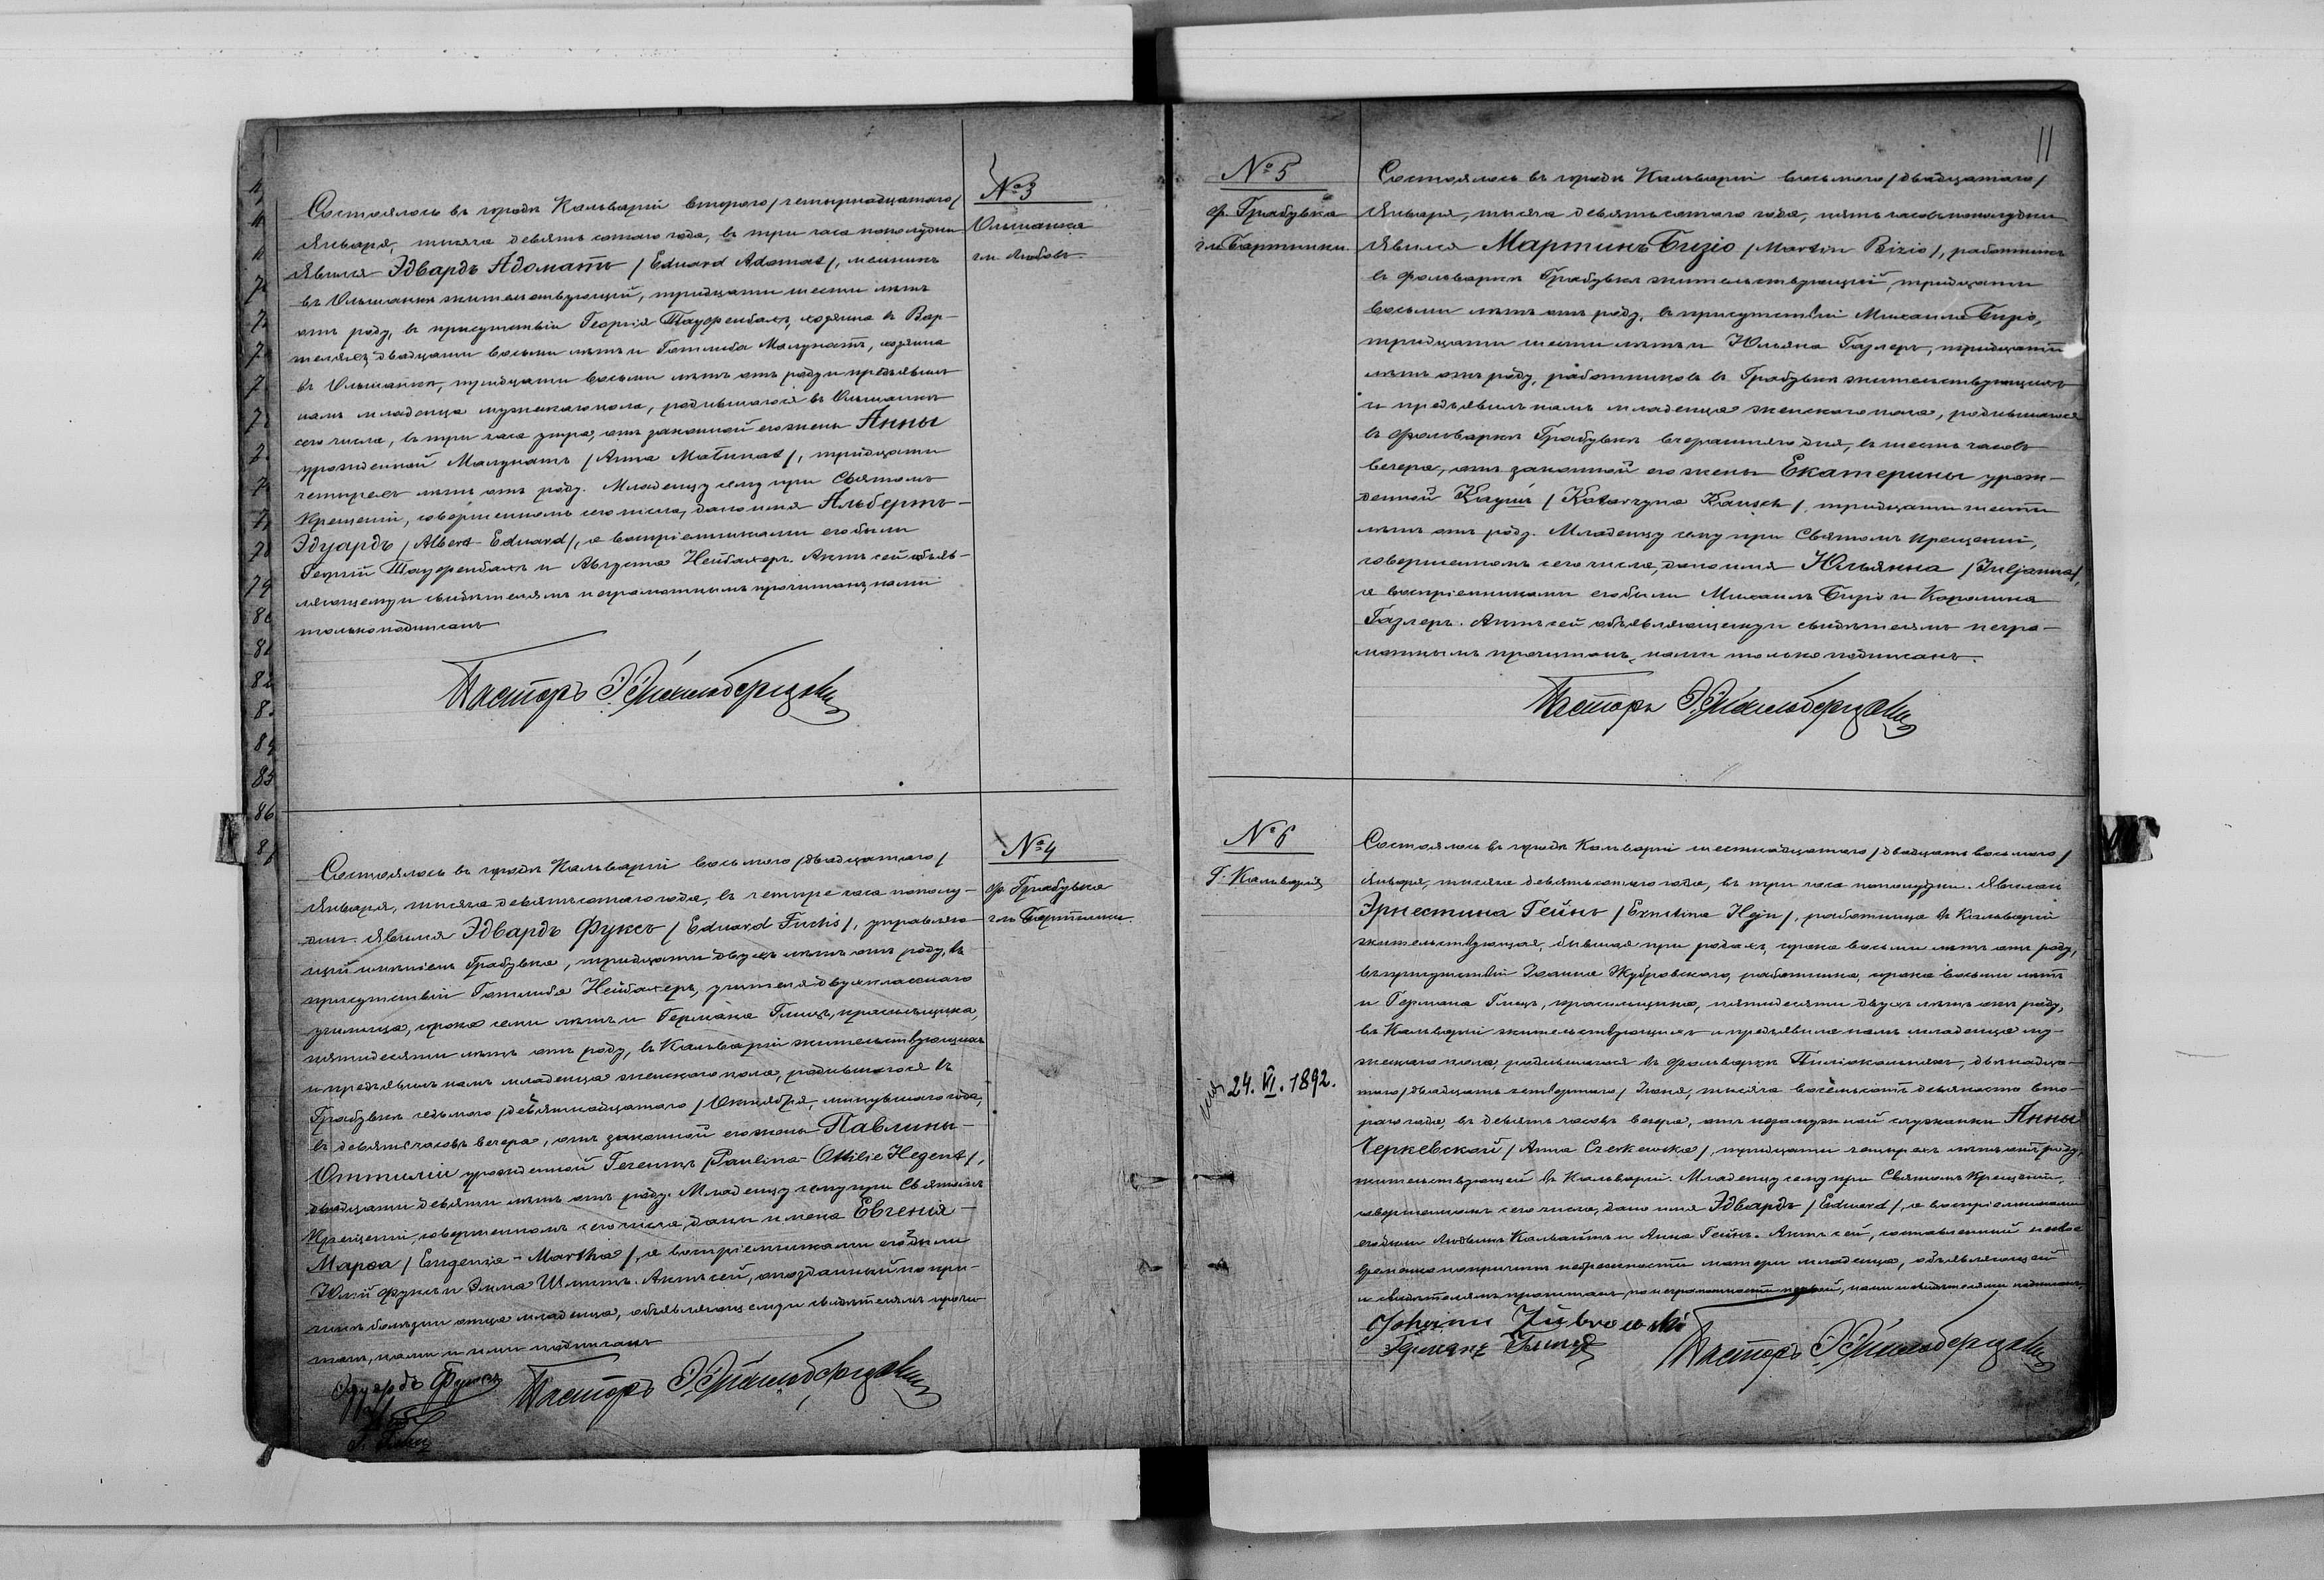 № 3
Ольшанка
гм. Любовъ
Состоялось въ городѣ Кальваріи второго /четырнадцатаго/
Января, тысяча девятьсотаго года, въ три часа пополудни
явился Эдвардъ Адоматъ /Eduard Adomat/,
въ Ольшанкѣ жительствующій, тридцати шести лѣтъ
отъ роду, въ присутствіи Георгія Тауфенбахъ, хозяина въ Вар-
теляхъ, двадцати восьми лѣтъ и Готлиба Матунатъ, хозяина
въ Ольшанкѣ, тридцати восьми лѣтъ отъ роду и предъявилъ
намъ младенца мужескаго пола, родившагося въ Ольшанкѣ
сего числа, въ три часа утра, отъ законной его жены Анны
урожденной Матунатъ /Anna Matunat/, тридцати
четырехъ лѣтъ отъ роду. Младенцу сему при Святомъ
Крещеніи, совершенномъ сего числа, дано имя Альбертъ-
Эдуардъ /Albert-Eduard/, а воспріемниками его были
Георгій Тауфенбахъ и Августа Нейбахеръ. Актъ сей объяв-
ляющему и свидѣтелямъ неграмотнымъ прочитанъ, нами
только подписанъ
Пасторъ
№ 4
ф. Грабувка
гм. Бартники.
Состоялось въ городѣ Кальваріи восьмого /двадцатаго/
Января, тысяча девятьсотаго года, въ четыре часа пополу-
дни. Явился Эдвардъ Фуксъ /Eduard Fuchs/, управляю-
щій имѣніемъ Грабувка, тридцати двухъ лѣтъ отъ роду, въ
присутствіи Готлиба Нейбахеръ, учителя двухкласснаго
училища, сорока семи лѣтъ и Германа Глицъ, красильщика,
пятидесяти лѣтъ отъ роду, въ Кальваріи жительствующихъ
и предъявилъ намъ младенца женскаго пола, родившагося въ
Грабувкѣ седьмого /девятнадцатаго/ Октября, минувшаго года,
въ девять часовъ вечера, отъ законной его жены Павлины-
Оттиліи урожденной Гегентъ /Paulina-Ottilie Hegent/,
двадцати девяти лѣтъ отъ роду. Младенцу сему при Святомъ
Крещеніи, совершенномъ сего числа, даны имена Евгенія-
Марѳа /Eugenia-Martha/, а воспріемниками его были
Юлій Фуксъ и Эмма Шмитъ. Актъ сей, опозданный по при-
чинѣ болѣзни отца младенца, объявляющему и свидѣтелямъ прочи-
танъ, нами и ими подписанъ
Эдуардъ Фуксъ
Пасторъ
11
№ 5
ф. Грабувка
гм. Бартники.
Состоялось въ городѣ Кальваріи восьмого /двадцатаго/
Января, тысяча девятьсотаго года, пять часовъ пополудни
явился Мартинъ Бизіо /Martin Bizio/, работникъ
въ фольваркѣ Грабувкѣ жительствующій, тридцати
восьми лѣтъ отъ роду, въ присутствіи Михаила Бизіо,
тридцати шести лѣтъ и Юльяна Газлеръ, тридцати
лѣтъ отъ роду, работниковъ въ Грабувкѣ жительствующихъ
и предъявилъ намъ младенца женскаго пола, родившагося
въ фольваркѣ Грабувкѣ вчерашняго дня, въ шесть часовъ
вечера, отъ законной его жены Екатерины урож-
денной Каушъ /Katarzyna Kausch/, тридцати шести
лѣтъ отъ роду. Младенцу сему при Святомъ Крещеніи,
совершенномъ сего числа, дано имя Юльянна /Juljanna/,
а воспріемниками его были Михаилъ Бизіо и Каролина
Газлеръ. Актъ сей объявляющему и свидѣтелямъ негра-
мотнымъ прочитанъ, нами только подписанъ.
Пасторъ
№ 6
Г. Кальварія
24.VI.1892.
Состоялось въ городѣ Кальваріи шестнадцатаго /двадцать восьмого/
Января, тысяча девятьсотаго года, въ три часа пополудни. Явилась
Эрнестина Гейнъ /Ernstina Hejn/, работница въ Кальваріи
жительствующая, бывшая при родахъ, сорока восьми лѣтъ отъ роду,
въ присутствіи Іоанна Жубровскаго, работника, сорока восьми лѣтъ
и Германа Глицъ, красильщика, пятидесяти двухъ лѣтъ отъ роду,
въ Кальваріи жительствующихъ и предъявила намъ младенца му-
жескаго пола, родившагося въ фольваркѣ двѣнадца-
таго /двадцать четвертаго/ Іюня, тысяча восемьсотъ девяносто вто-
раго года въ девять часовъ вечера, отъ незамужной служанки Анны
Черкевской /Anna Czerkewska/, тридцати четырехъ лѣтъ отъ роду,
жительствующей въ Кальваріи. Младенцу сему при Святомъ Крещеніи,
совершенномъ сего числа, дано имя Эдвардъ /Edward/, а воспріемниками
его были Людвикъ Кальвайтъ и Анна Гейнъ. Актъ сей, составленный несвое-
временно по причинѣ небрежности матери младенца, объявляющей
и свидѣтелямъ прочитанъ, по неграмотности первой, нами и свидѣтелями подписанъ,
Johann Zubrowski
Германъ Глицъ
Пасторъ